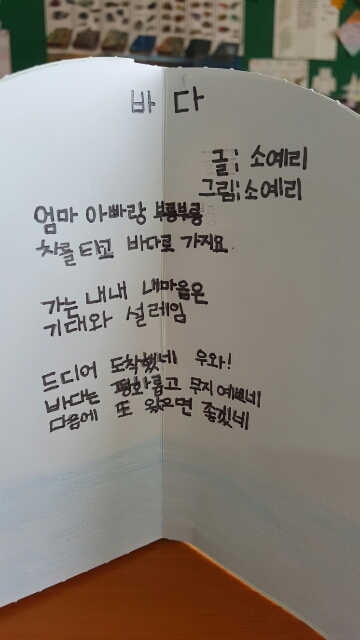 바다
글; 소예리
그림; 소예리
엄마 아빠랑 부릉부릉
차를 타고 바다로 가지요.
가는 내내 내마음은
기대와 설레임
드디어 도착했네 우와!
바다는 평화롭고 무지 예쁘네
다음에 또 왔으면 좋겠네